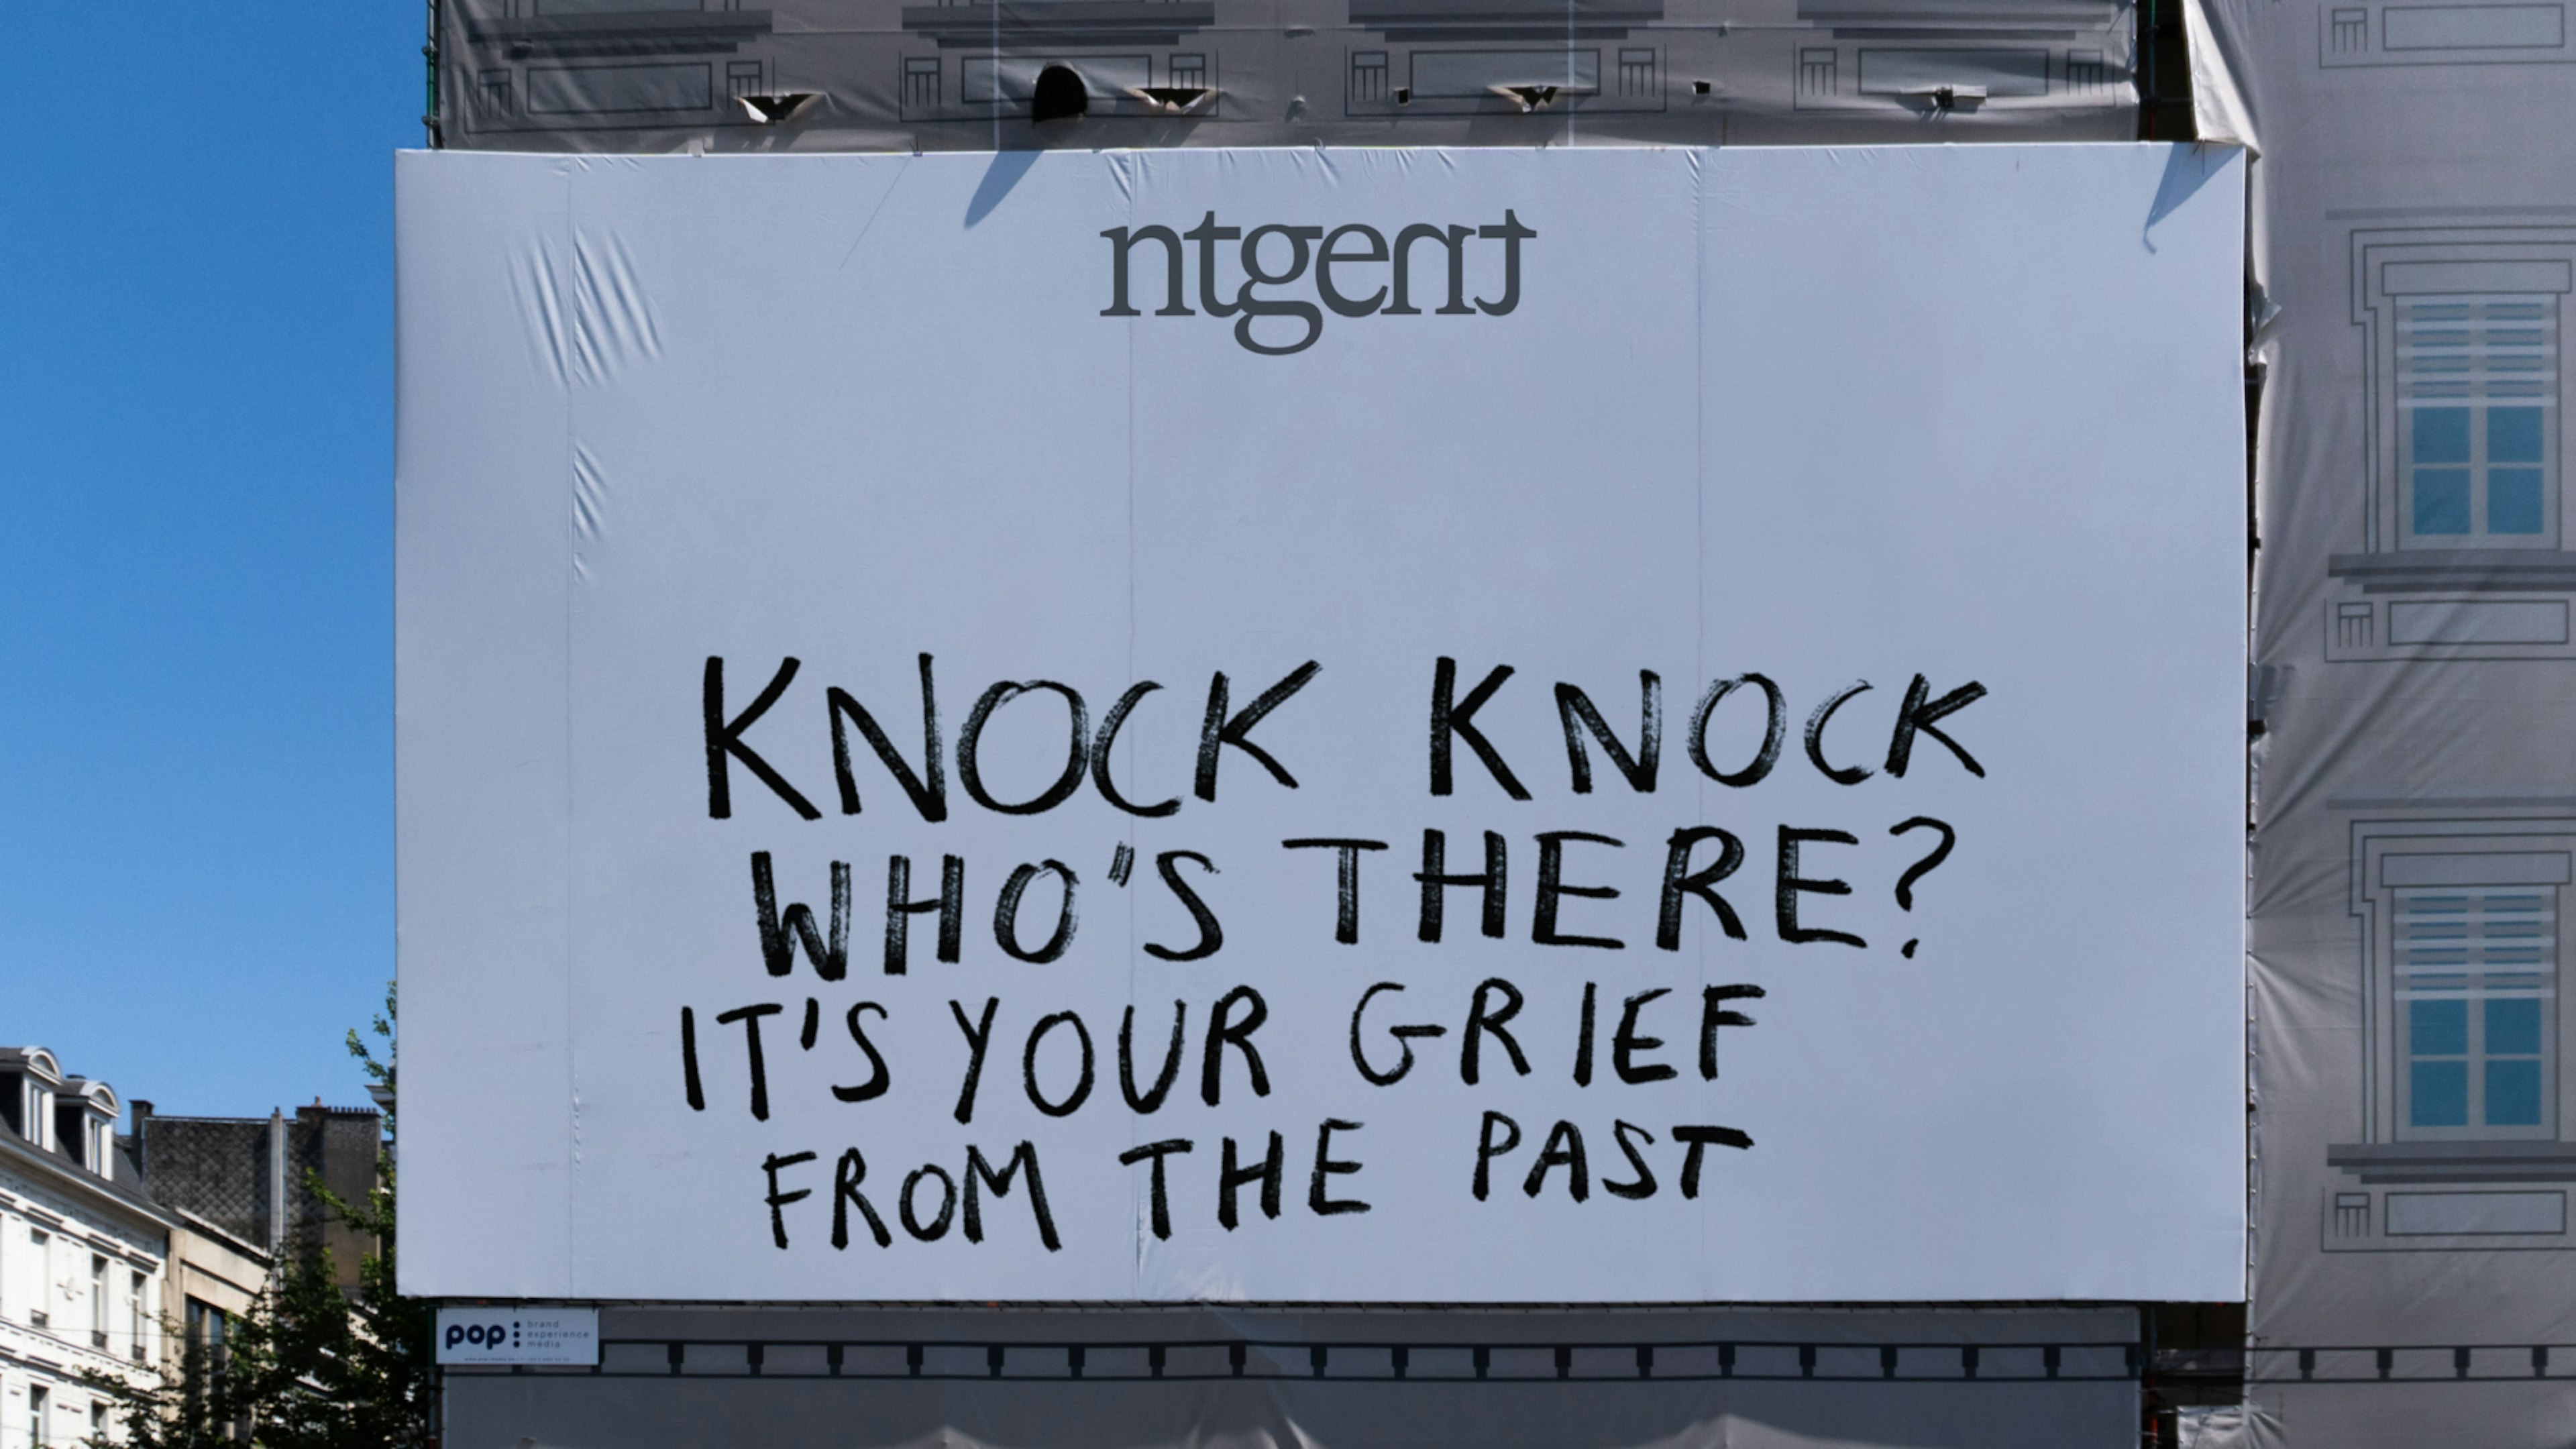 ntgent
KNOCK KNOCK
WHO'S THERE?
IT'S YOUR GRIEF
FROM THE PAST
pop
brand
experience
media